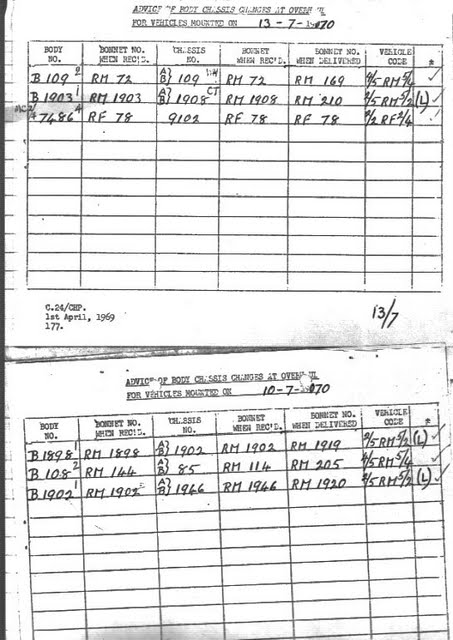 ADVICE OF BODY CHASSIS CHANGES AT OVERHAUL
FOR VEHICLES MOUNTED ON 13-7-1970
BODY NO. BONNET NO. WHEN REC'D. CHASSIS NO. BONNET WHEN REC'D. BONNET NO. WHEN DELIVERED VEHICLE CODE *
B 109 RM 72 A} B} 109 RM 72 RM 169 ✓
B 1903 1 RM 1903 A} B} 1908 CT RM 1908 RM 210 (L) ✓
7486 4 RF 78 9102 RF 78 RF 78 2/2 RF 2/4 ✓
C.24/CHP.
1st April, 1969
177.
13/7
ADVICE OF BODY CHASSIS CHANGES AT OVERHAUL
FOR VEHICLES MOUNTED ON 10-7-1970
BODY NO. BONNET NO. WHEN REC'D. CHASSIS NO. BONNET WHEN REC'D. BONNET NO. WHEN DELIVERED VEHICLE CODE *
B 1898 1 RM 1898 A} B} 1902 RM 1902 RM 1919 2/5 RM 5/2 (L) ✓
B 108 2 RM 144 A} B} 85 RM 114 RM 205 RM 5/4 ✓
B 1902 1 RM 1902 A} B} 1946 RM 1946 RM 1920 RM 5/2 (L) ✓